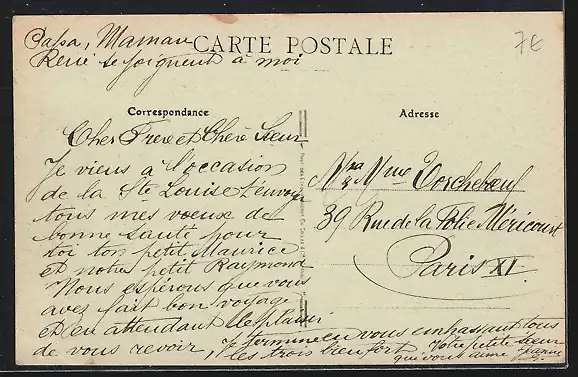 Papa, Maman
René se joignent à moi
7€
CARTE POSTALE
Correspondance
Adresse
Cher Frere et Chere Sœur
Je viens a l'occasion
de la Ste Louise t'envoyer
tous mes vœux de
bonne santé pour
toi ton petit Maurice
et notre petit Raymond
Nous espérons que vous
avez fait bon voyage
et en attendant le plaisir
de vous revoir, je termine en vous embrassant tous
les trois bien fort Votre petite sœur
qui vous aime
Mr & Mme
39 Rue de la Folie Méricourt
Paris XI